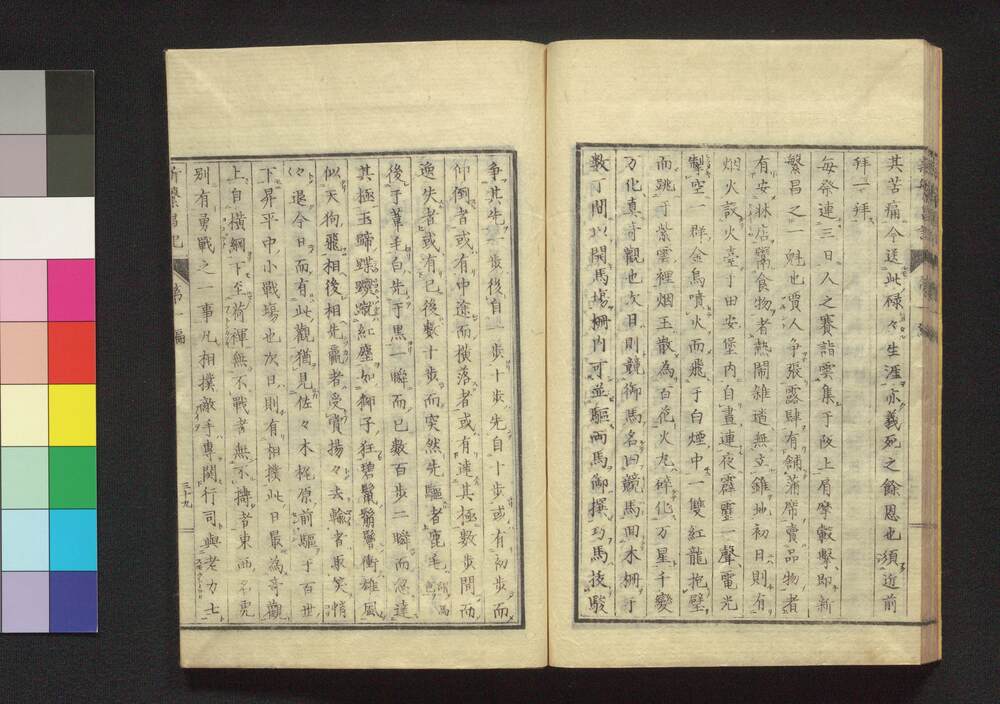 其苦痛今送此碌々生涯亦義死之餘恩也須近前
拜一拜
每祭連三日人之賽詣雲集于阪上肩摩轂擊即新
繁昌之一魁也賈人争張露肆有舖蒲席賣品物者
有安牀店鬻食物者熱閙雜遝無立錐地初日則有
烟火設火臺于田安堡内自晝連夜霹靂一聲電光
掣空一群金烏噴火而飛于白煙中一雙紅龍抱璧
而跳于紫雲裡烟玉散為百花火丸碎化万星千變
万化真奇觀也次日則競御馬名曰競馬回木柵于
數丁間以開馬場柵内可並驅兩馬御撰巧馬技駿
争其先一步後自一步十步先自十步或有初步而
仰倒者或有中途而横落者或有達其極數步間而
逸失者或有已後數十步而突然先驅者鹿毛
後于葦毛白先于黒一瞬而已數百步二瞬而忽達
其極玉蹄蹀躞蹴紅塵如獅子狂碧鬣鬅鬙衝雄風
似天狗飛相後相先贏者受賞揚々去輸者取笑悄
々退今日而有此觀猶見佐々木梶原前驅于百世
下昇平中小戰場也次日則有相撲此日最為奇觀
上自横綱下至荷褌無不戰者無不搏者東西名虎
別有勇戰之一事凡相撲敵手專関行司與老力士
新繁昌記 第一編 三十九